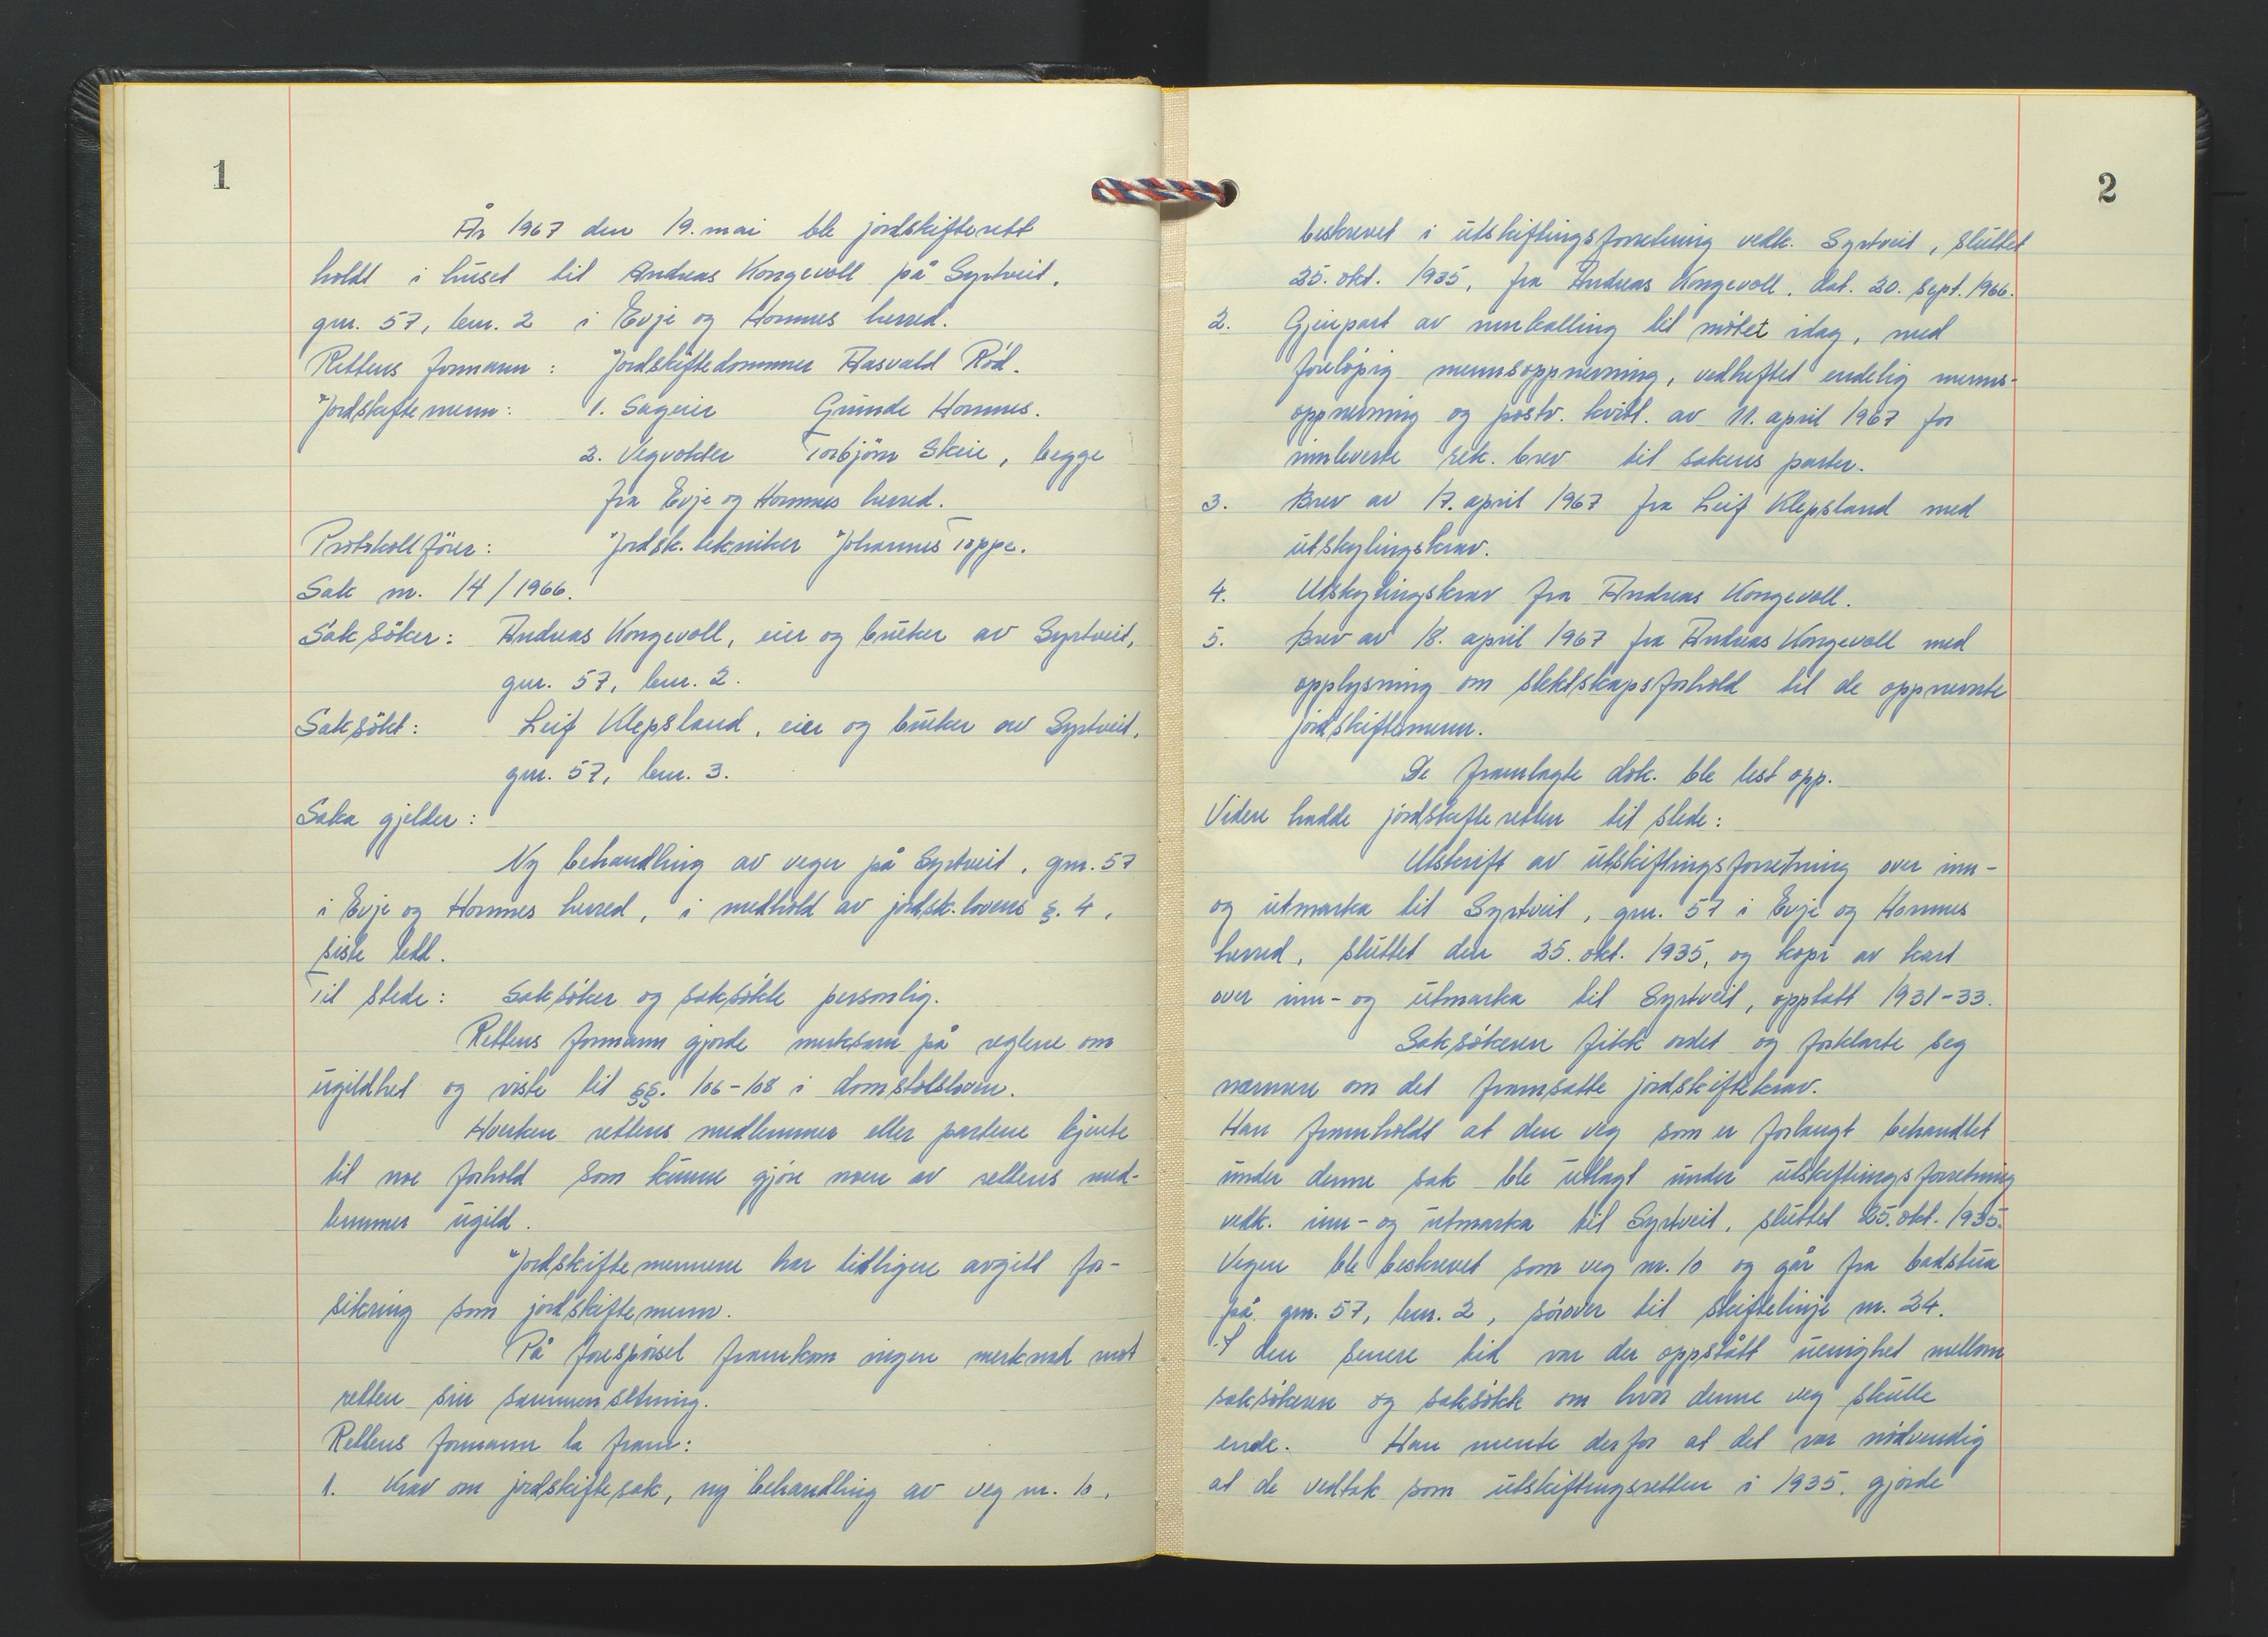 1
År 1967 den 19. mai ble jordskifterett
holdt i huset til Andreas Kongevoll på Syrtveit,
gnr. 57, bnr. 2 i Evje og Hornnes herred.
Rettens formann: Jordskiftedommer Aasvald Rød.
Jordskiftemenn: 1. Sageier Gunde Hornnes.
2. Vegvokter Torbjörn Skeie, begge
fra Evje og Hornnes herred.
Protokollförer: Jordsk. tekniker Johannes Toppe.
Sak nr. 14/1966.
Saksöker: Andreas Kongevoll, eier og bruker av Syrtveit,
gnr. 57, bnr. 2.
Saksökt: Leif Klepsland, eier og bruker av Syrtveit,
gnr. 57, bnr. 3.
Saka gjelder:
Ny behandling av veger på Syrtveit, gnr. 57
i Evje og Hornnes herred, i medhold av jordsk.lovens §. 4,
siste ledd.
Til stede: Saksöker og saksökte personlig.
Rettens formann gjorde merksam på reglene om
ugildhet og viste til §§. 106-108 i domstolsloven.
Hverken rettens medlemmer eller partene kjente
til noe forhold som kunne gjöre noen av rettens med-
lemmer ugild.
Jordskiftemennene har tidligere avgitt for-
sikring som jordskiftemenn.
På forespörsel framkom ingen merknad mot
retten sin sammensetning.
Rettens formann la fram:
1. Krav om jordskiftesak, ny behandling av veg nr. 10,
2
beskrevet i utskiftingsforretning vedk. Syrtveit, sluttet
25. okt. 1935, fra Andreas Kongevoll, dat. 20. sept. 1966.
2. Gjenpart av innkalling til mötet idag, med
forelöpig mennsoppnevning, vedheftet endelig menns-
oppnevning og postv. kvitt. av 11. april 1967 for
innleverte rek. brev til sakens parter.
3. Brev av 17. april 1967 fra Leif Klepsland med
utskylingskrav.
4. Utskylingskrav fra Andreas Kongevoll.
5. Brev av 18. april 1967 fra Andreas Kongevoll med
opplysning om slektskapsforhold til de oppnevnte
jordskiftemenn.
De framlagte dok. ble lest opp.
Videre hadde jordskifteretten til stede:
Utskrift av utskiftingsforretning over inn-
og utmarka til Syrtveit, gnr. 57 i Evje og Hornnes
herred, sluttet den 25. okt. 1935, og kopi av kart
over inn- og utmarka til Syrtveit, opptatt 1931-33.
Saksökeren fikk ordet og forklarte seg
nærmere om det framsatte jordskiftekrav.
Han framholdt at den veg som er forlangt behandlet
under denne sak ble utlagt under utskiftingsforretning
vedk. inn- og utmarka til Syrtveit, sluttet 25. okt. 1935.
Vegen ble beskrevet som veg nr. 10 og går fra badstua
på gnr. 57, bnr. 2, sörover til skiftelinje nr. 24.
I den senere tid var der oppstått uenighet mellom
saksökeren og saksökte om hvor denne veg skulle
ende. Han mente derfor at det var nödvendig
at de vedtak som utskiftingsretten i 1935 gjorde